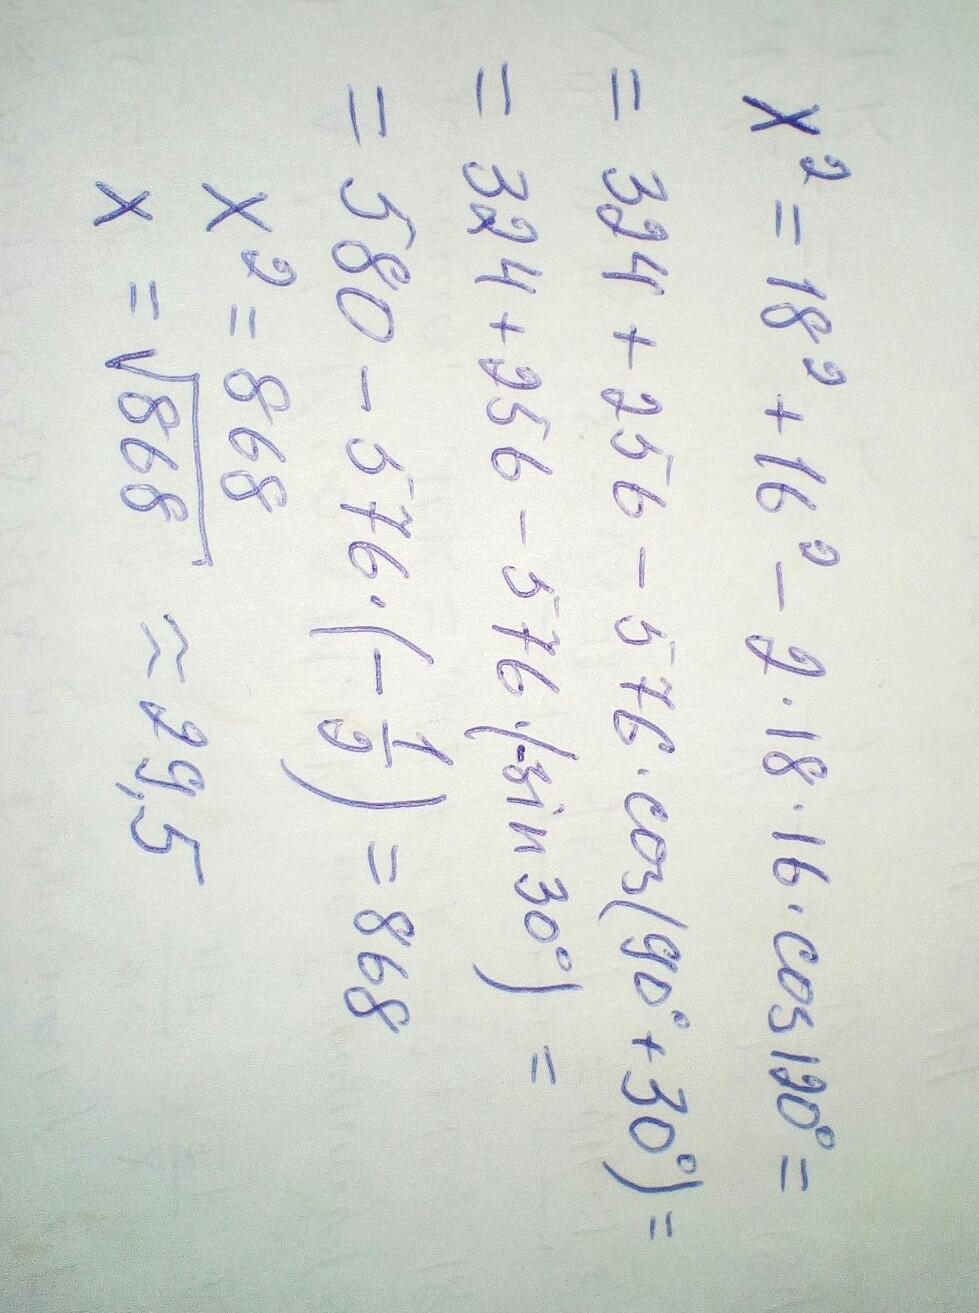 x² = 18² + 16² - 2 · 18 · 16 · cos 120° =
= 324 + 256 - 576 · cos(90° + 30°) =
= 324 + 256 - 576 · (-sin 30°) =
= 580 - 576 · (-1/2) = 868
x² = 868
x = √868 ≈ 29,5